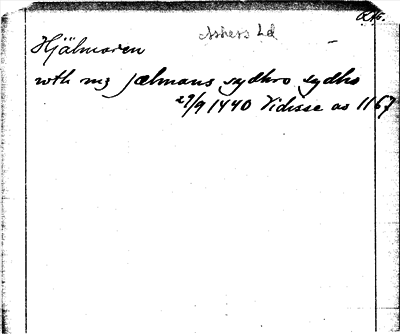 Askers hd
Hjälmaren
wtk mz jælmans sydhro sydho
29/9 1440 Vidisse as 1167